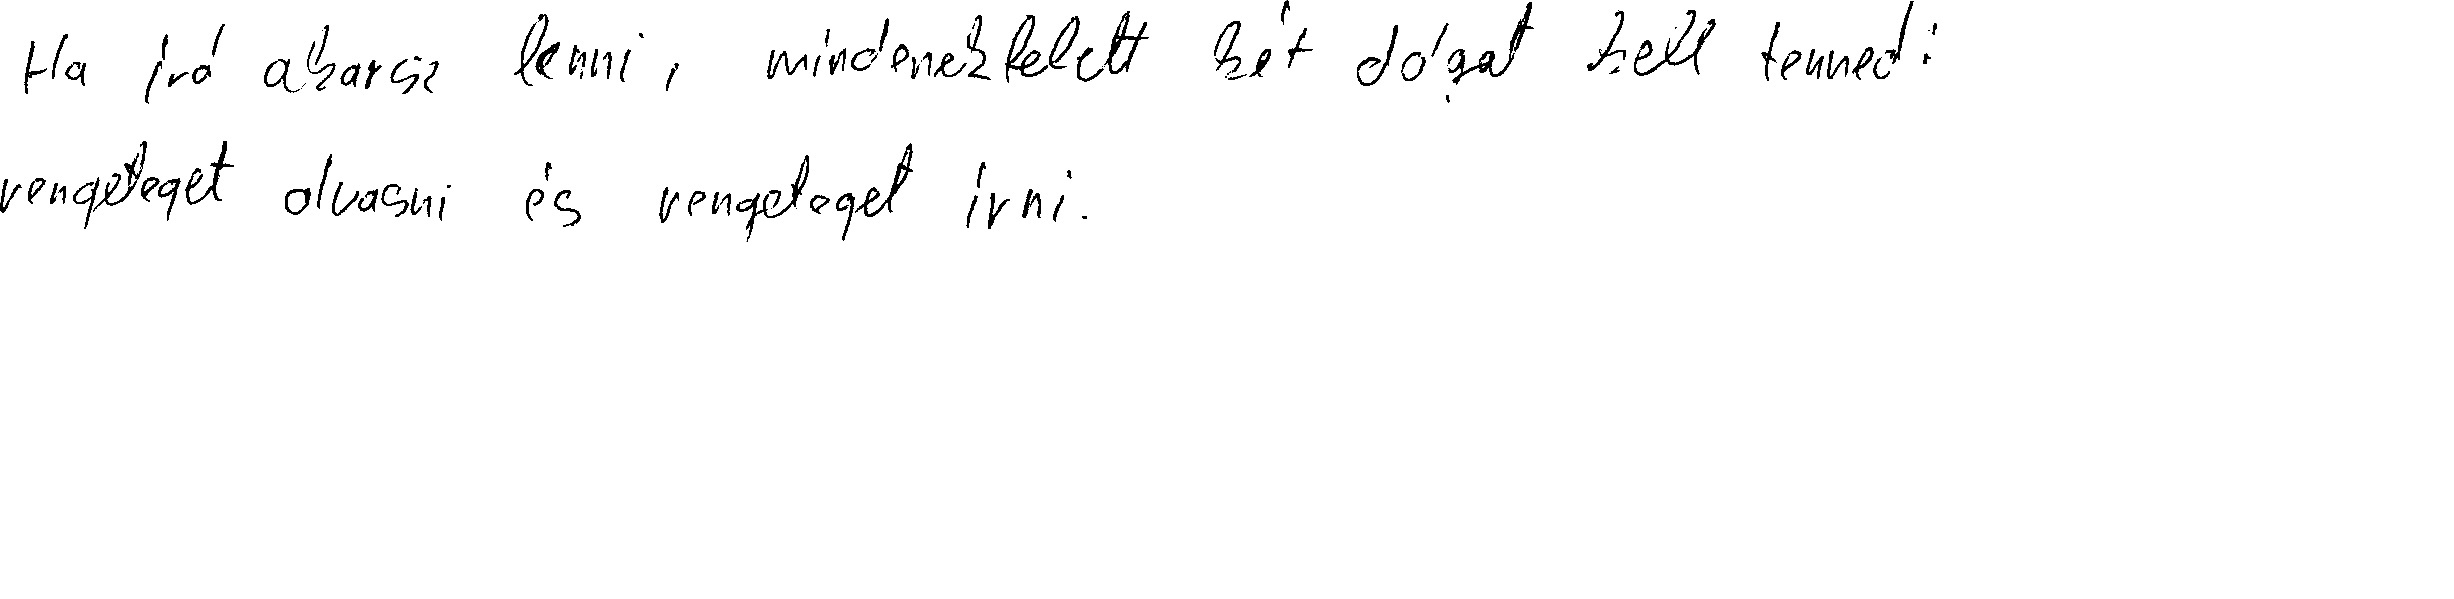 Ha író akarsz lenni, mindenekfelett két dógat kell tenned:
rengeteget olvasni és rengeteget írni.